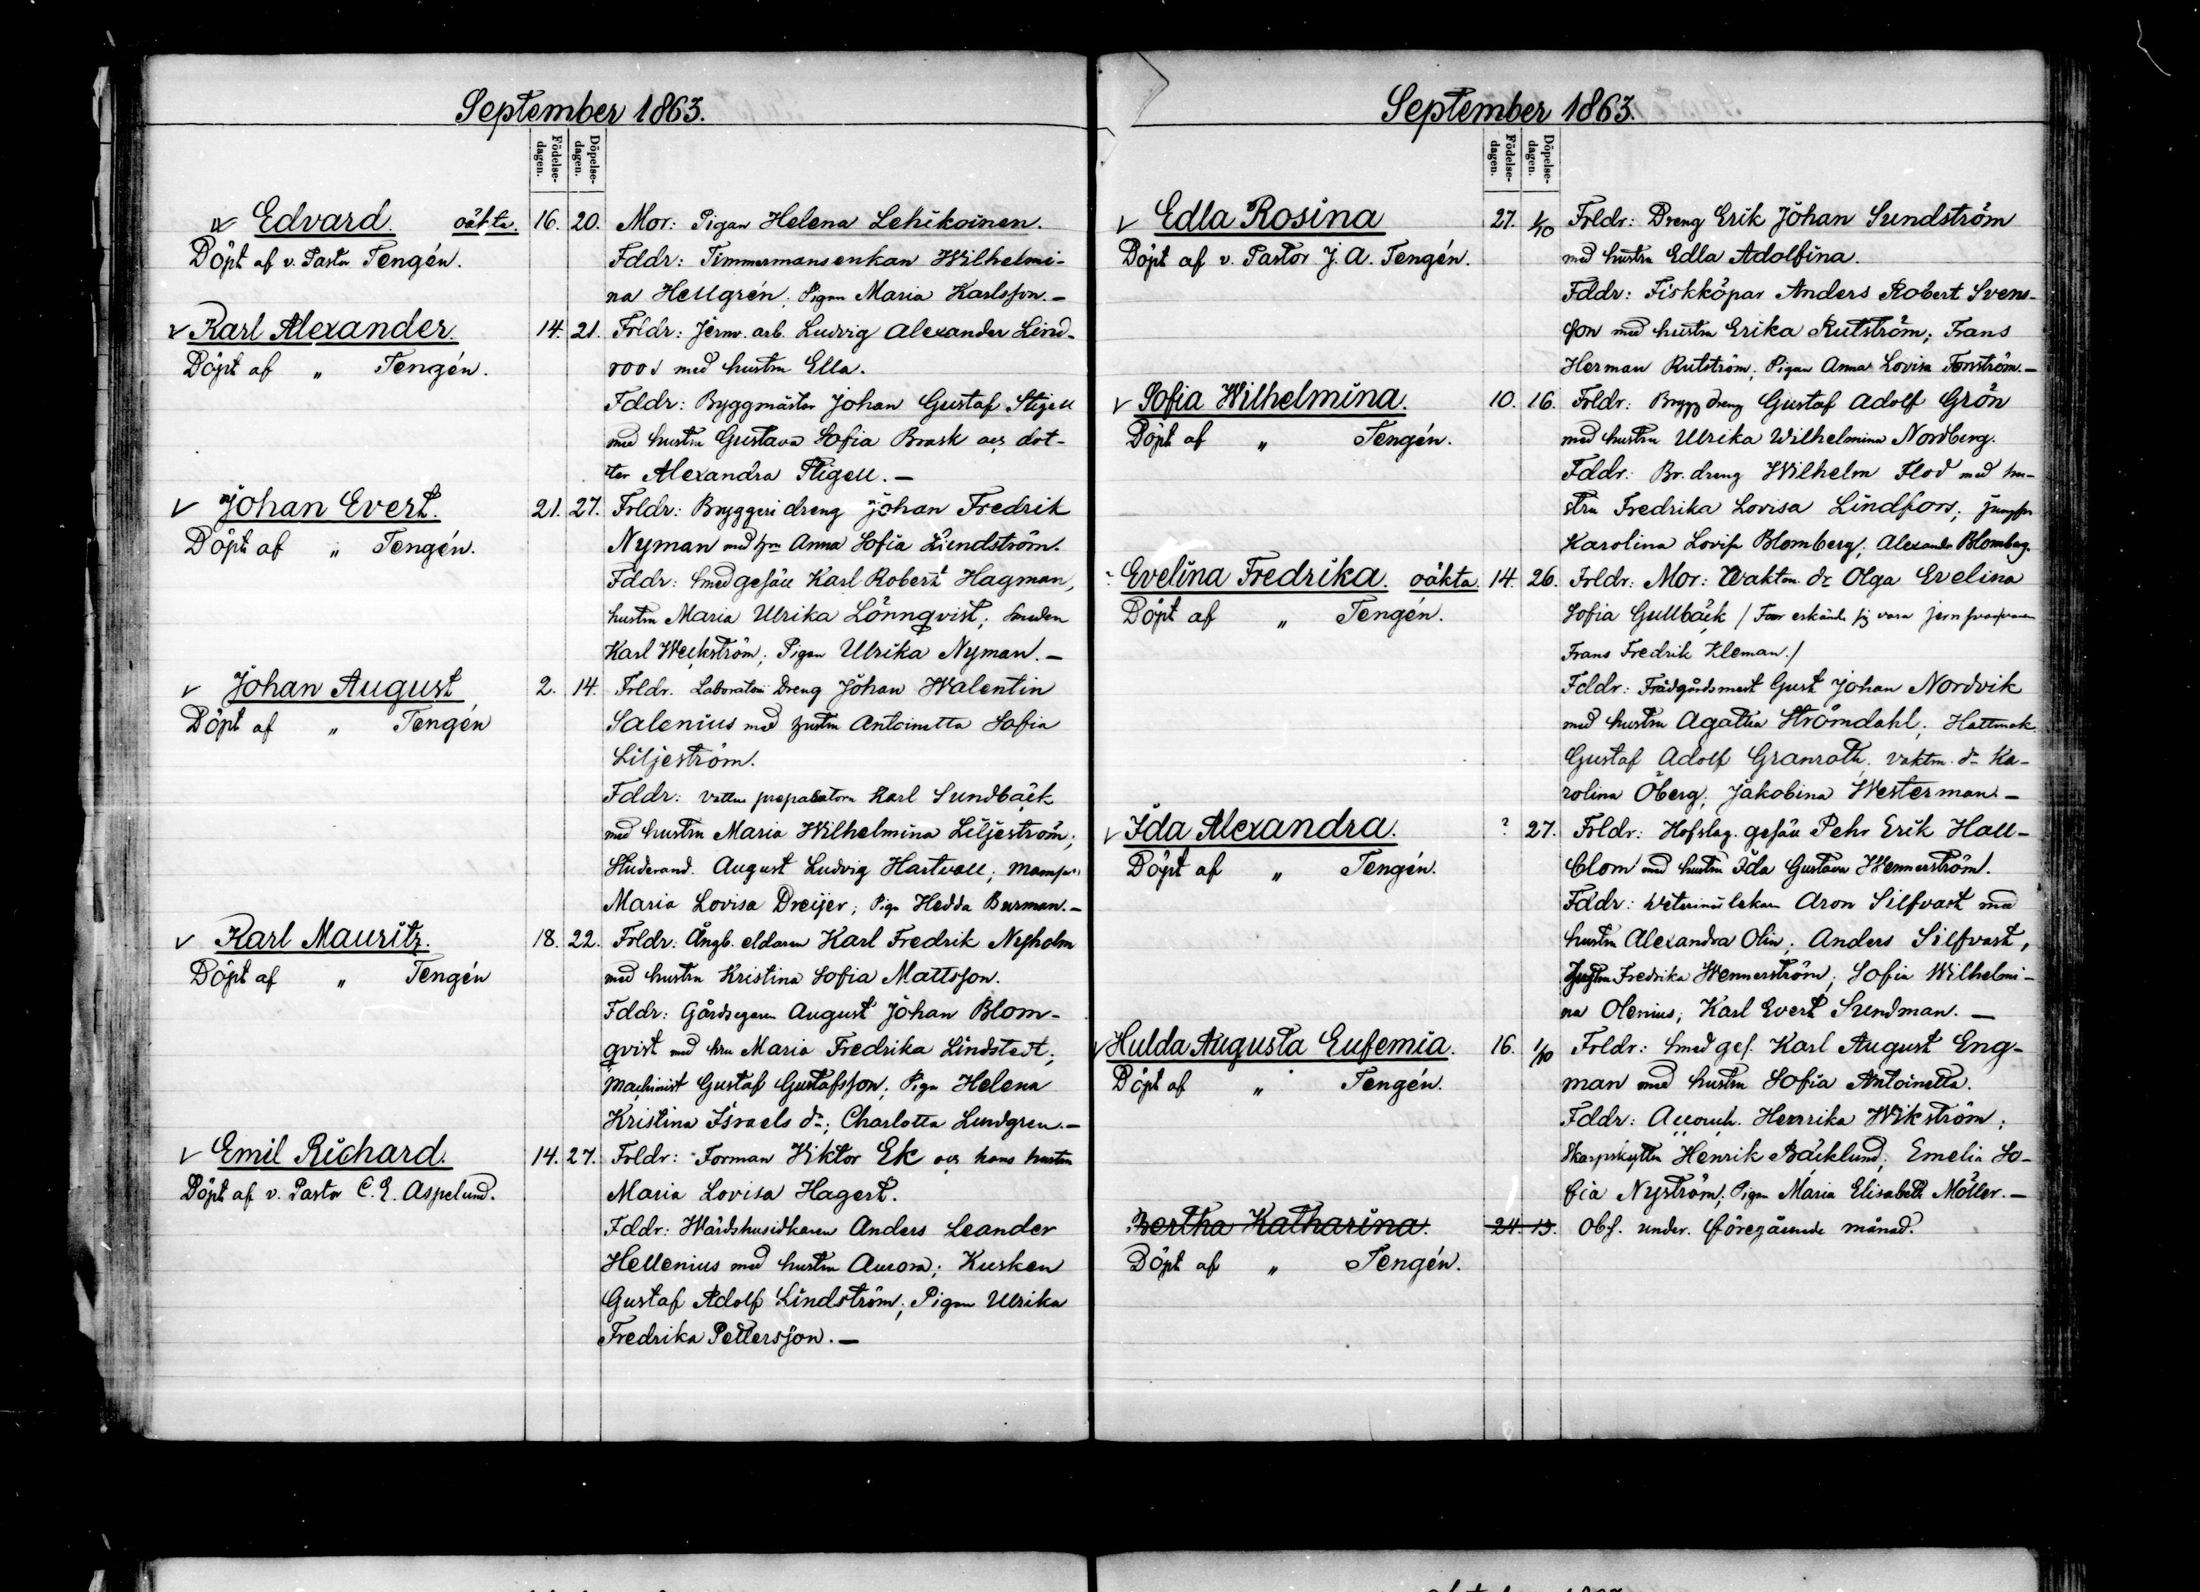 September 1863.
Födelse-
dagen.
Döpelse-
dagen.
Edvard. oäkta. 16. 20. Mor: Pigan Helena Lehikoinen.
Döpt af v. Pastor Tengén. Fddr: Timmermansenkan Wilhelmi-
na Hellgrén; Pigan Maria Karlsson. —
Karl Alexander. 14. 21. Frldr: Jernv. arb. Ludvig Alexander Lind-
Döpt af " Tengén. roos med hustru Ella.
Fddr: Byggmästar Johan Gustaf Stigell
med hustru Gustava Sofia Brask och dot-
ter Alexandra Stigell. —
Johan Evert. 21. 27. Frldr: Bryggeri dreng Johan Fredrik
Döpt af " Tengén. Nyman med hru Anna Sofia Lindström.
Fddr: Smedgesäll Karl Robert Hagman,
hustru Maria Ulrika Lönnqvist; Smeden
Karl Weckström; Pigan Ulrika Nyman. —
Johan August 2. 14. Frldr. Laboratorii Dreng Johan Walentin
Döpt af " Tengén Salenius med hustru Antoinetta Sofia
Liljeström.
Fddr: Vatten preparatorn Karl Sundbäck
med hustru Maria Wilhelmina Liljeström;
Studerand. August Ludvig Hartvall; Mamsell
Maria Lovisa Dreijer; Pign Hedda Burman. —
Karl Mauritz. 18. 22. Frldr: Ångb. eldaren Karl Fredrik Nyholm
Döpt af " Tengén med hustru Kristina Sofia Mattsson.
Fddr: Gårdsegaren August Johan Blom-
qvist med hru Maria Fredrika Lindstedt;
Machinist Gustaf Gustafsson; Pign Helena
Kristina Israels dr; Charlotta Lundgren. —
Emil Richard. 14. 27. Frldr: Forman Viktor Ek och hans hustru
Döpt af v. Pastor C. E. Aspelund. Maria Lovisa Hagert.
Fddr: Wärdshusidkaren Anders Leander
Hellenius med hustru Aurora; Kusken
Gustaf Adolf Lindström; Pigan Ulrika
Fredrika Pettersson. —
September 1863.
Födelse-
dagen.
Döpelse-
dagen.
Edla Rosina 27. 1/10 Frldr: Dreng Erik Johan Sundström
Döpt af v. Pastor J. A. Tengén. med hustru Edla Adolfina.
Fddr: Fiskköpar Anders Robert Svens-
son med hustru Erika Rutström; Frans
Herman Rutström; Pigan Anna Lovisa Forsström. —
Sofia Wilhelmina. 10. 16. Frldr: Brygg dreng Gustaf Adolf Grön
Döpt af " Tengén. med hustru Ulrika Wilhelmina Nordberg.
Fddr: Br. dreng Wilhelm Flod med hu-
stru Fredrika Lovisa Lindfors; jungfru
Karolina Lovisa Blomberg; Alexander Blomberg.
Evelina Fredrika. oäkta. 14. 26. Frldr: Mor: Waktm. dr Olga Evelina
Döpt af " Tengén. Sofia Gullbäck / Far erkände sig vara
Frans Fredrik Kleman. /
Fddr: Trädgårdsmast Gust Johan Nordvik
med hustru Agatha Strömdahl; Hattmak.
Gustaf Adolf Granroth; Vaktm. dr Ka-
rolina Öberg; Jakobina Westerman. —
Ida Alexandra. ? 27. Frldr: Hofslag. gesäll Pehr Erik Hall-
Döpt af " Tengén. blom med hustru Ida Gustava Wennerström.
Fddr: Veterinärläkare Aron Silfvast med
hustru Alexandra Olin. Anders Silfvast,
hustru Fredrika Wennerström; Sofia Wilhelmi-
na Olenius; Karl Evert Sundman. —
Hulda Augusta Eufemia. 16. 1/10 Frldr: Smedges. Karl August Eng-
Döpt af " Tengén. man med hustru Sofia Antoinetta.
Fddr: Accouch. Henrika Wikström;
Skarpskytten Henrik Bäcklund; Emelia So-
fia Nyström; Pigan Maria Elisabeth Möller. —
Bertha Katharina. 24. 13. Obs. under föregående månad.
Döpt af " Tengén.